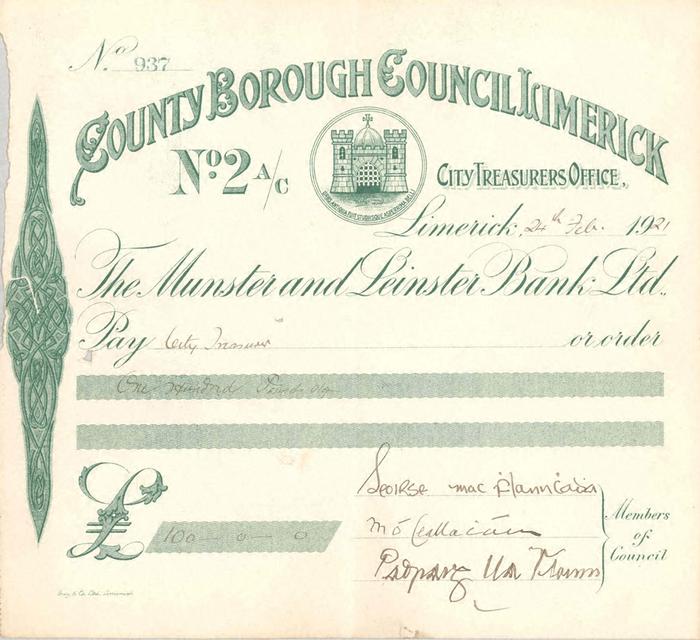 No. 937
COUNTY BOROUGH COUNCIL LIMERICK
No. 2 A/C
CITY TREASURERS OFFICE,
URBS ANTIQUA FUIT STUDIISQUE ASPERRIMA BELLI
Limerick, 24th Feb. 1921
The Munster and Leinster Bank Ltd.,
Pay City Treasurer or order
One Hundred Pounds
£ 100 — 0 — 0
Seoirse mac
Members
of
Council
Ltd. Limerick